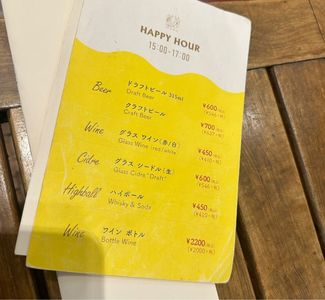 HAPPY HOUR
15:00-17:00
Beer
ドラフトビール 315ml
Draft Beer
¥600
(¥546+税)
クラフトビール
Craft Beer
¥700
Wine
グラス ワイン（赤/白）
Glass Wine red/white
¥450
Cidre
グラス シードル（生）
Glass Cidre "Draft"
¥600
(¥546+税)
Highball
ハイボール
Whisky & Soda
¥450
Wine
ワイン ボトル
Bottle Wine
¥2200
(¥2000+税)